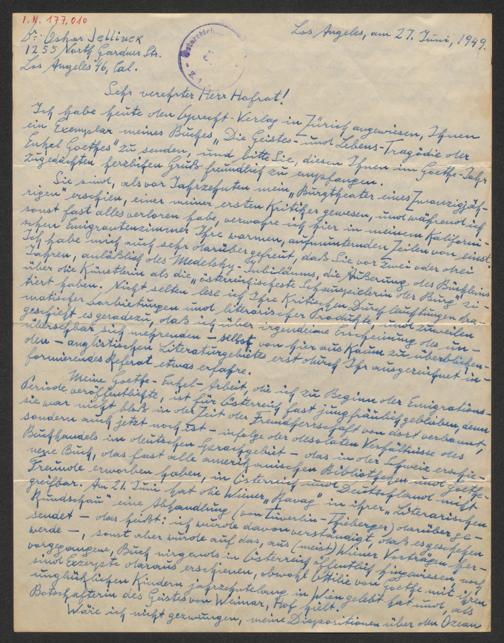 I.N. 177.010
Dr. Oskar Jellinek
1253 North Gardner Str.
Los Angeles 46, Cal.
Los Angeles, am 27. Juni, 1949.
Sehr verehrter Herr Hofrat!
Ich habe heute den Oprecht-Verlag in Zürich angewiesen, Ihnen
ein Exemplar meines Buches „Die Geistes- und Lebens-Tragödie der
Enkel Goethes" zu senden, und bitte Sie, diesen Ihnen im Goethe-Jahr
zugedachten herzlichen Gruß freundlich zu empfangen.
Sie sind, als vor Jahrzehnten mein „Burgtheater eines Zwanzigjäh-
rigen" erschien, einer meiner ersten Kritiker gewesen, und während ich
sonst fast alles verloren habe, verwahre ich hier in meinem Kaliforni-
schen Emigrantenzimmer Ihre warmen, aufmunternden Zeilen von einst.
Ich habe mich auch sehr darüber gefreut, daß Sie vor zwei oder drei
Jahren, anläßlich des Medelsky-Jubiläums, die Äußerung des Büchleins
über die Künstlerin als die „österreichischeste Schauspielerin der Burg" zi-
tiert haben. Nicht selten lese ich Ihre Kritischen dra-
matischer Darbietungen und literarischer Produkte, und zuweilen
geschieht es geradezu, daß ich über irgendeine Erscheinung des un-
übersehbar sich mehrenden – selbst von hier aus kaum zu überblicken-
den – Literaturgebietes erst durch Ihr ausgezeichnet in-
formierendes Referat etwas erfahre.
Meine Goethe-Enkel-Arbeit, die ich zu Beginn der Emigrations-
Periode veröffentlichte, ist für Österreich fast jungfräulich geblieben, denn
sie war nicht bloß in der Zeit der Fremdherrschaft von dort verbannt,
sondern auch jetzt noch ist – infolge der desolaten Verhältnisse des
Buchhandels im deutschen Sprachgebiet – das in der Schweiz erschie-
nene Buch, das fast alle amerikanischen Bibliotheken und Goethe-
Freunde erworben haben, in Österreich und Deutschland nicht
greifbar. Am 21. Juni hat die Wiener „Ravag" in ihrer „Literarischen
Rundschau" eine Abhandlung (von Thieberger) darüber ge-
sendet – das heißt: ich wurde davon verständigt, daß es geschehen
werde –, sonst aber wurde auf das, aus (meist) Wiener Vorträgen her-
vorgegangene, Buch nirgends in Österreich öffentlich hingewiesen, noch
sind Exzerpte daraus erschienen, obwohl Ottilie von Goethe mit ihren
unglücklichen Kindern jahrzehntelang in Wien gelebt hat und, als
Botschafterin des Geistes von Weimar, Hof hielt.
Wäre ich nicht gezwungen, meine Dispositionen über den Ozean